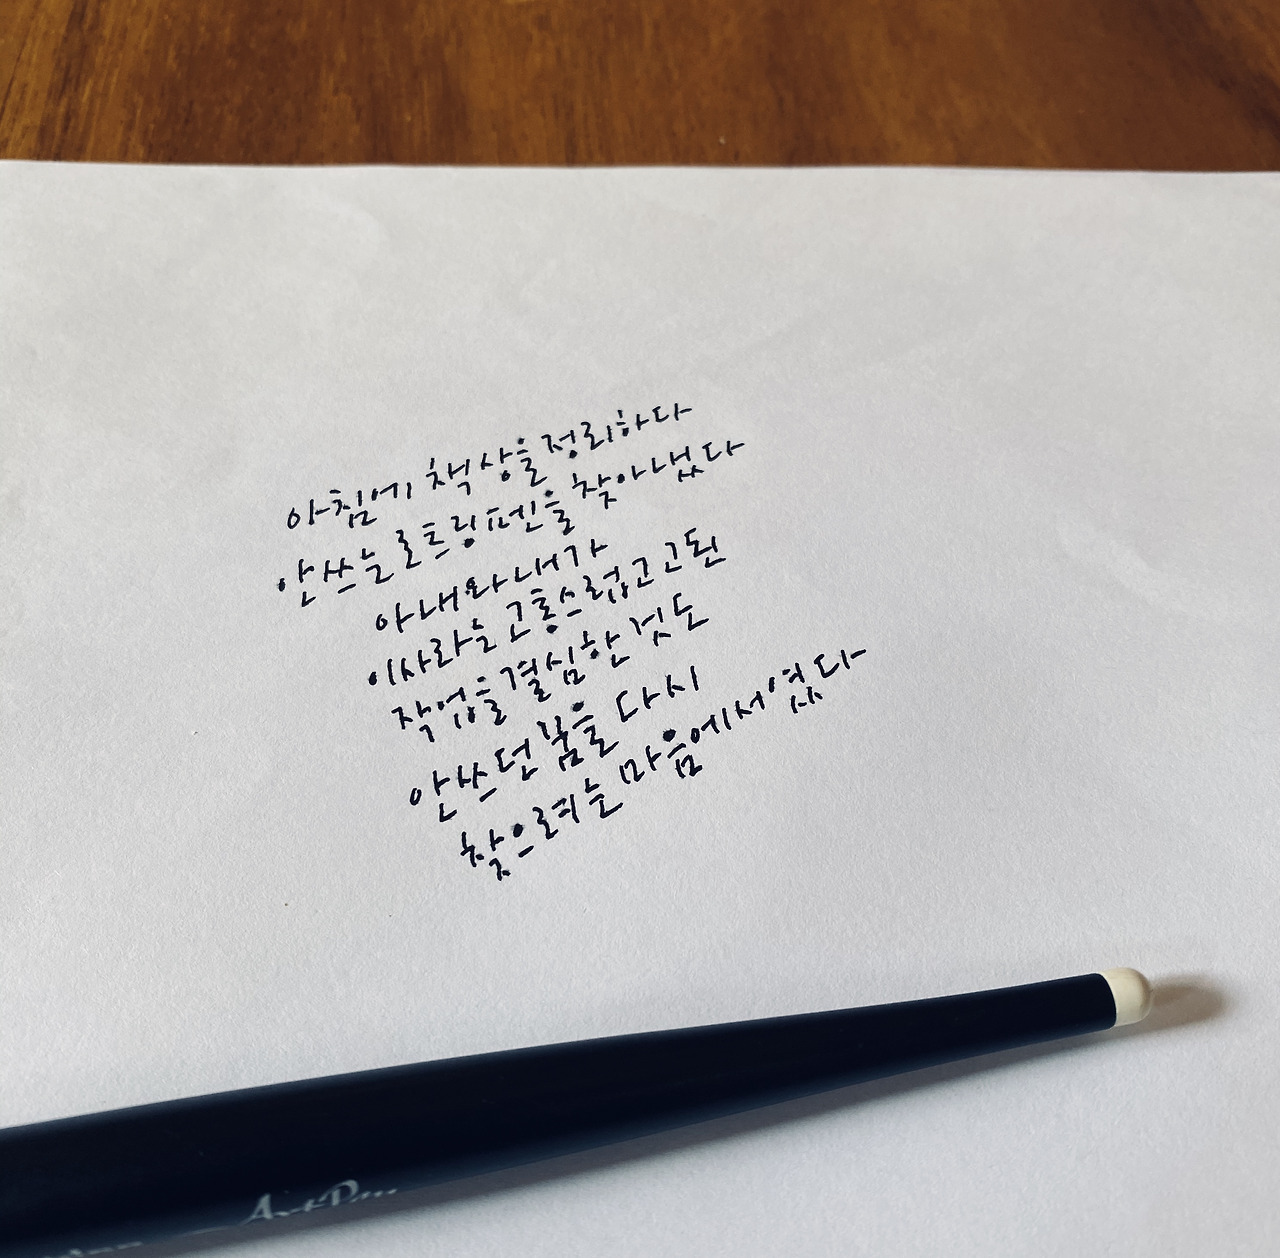 아침에 책상을 정리하다
안쓰는 로트링 펜을 찾아냈다
아내와 내가
이사라는 고통스럽고 고된
작업을 결심한 것도
안쓰던 붐을 다시
찾으려는 마음에서였다
ArtPen